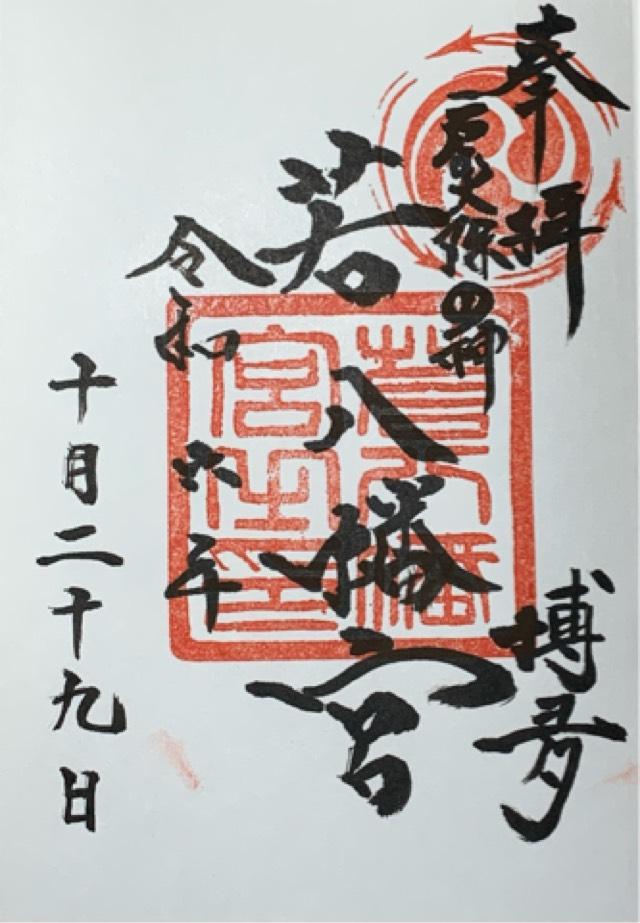 奉拝
博多
若八幡宮
若八幡
宮之印
令和六年
十月二十九日